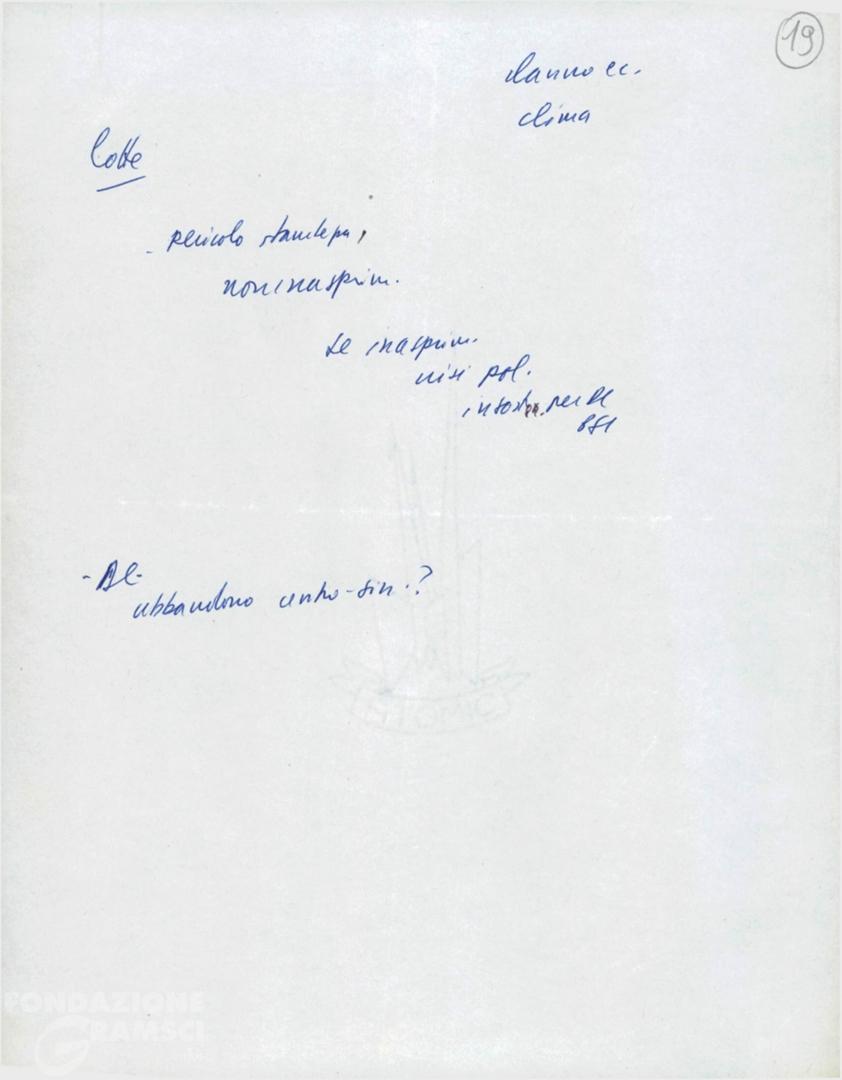 19
danno ec.
clima
Lotte
- pericolo stanchezza,
non inasprim.
se inasprim.
crisi pol.
insost. per DC
PSI
- DC -
abbandono centro-sin.?
ATOMIC
FONDAZIONE
GRAMSCI